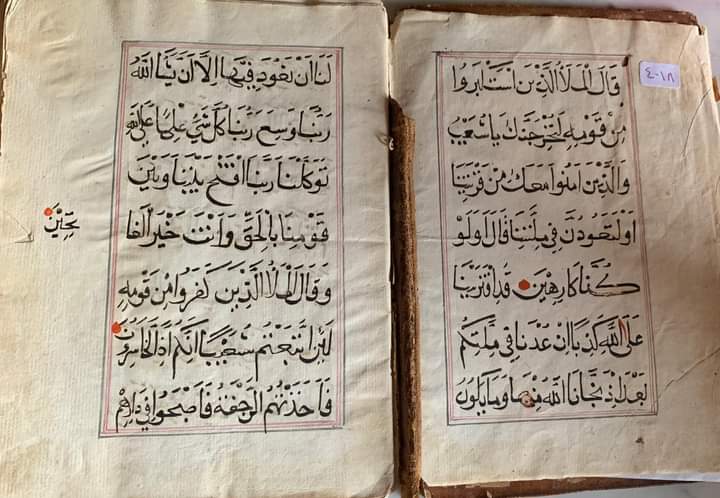 قَالَ الْمَلَأُ الَّذِيْنَ اسْتَكْبَرُوا
مِنْ قَوْمِهِ لَنُخْرِجَنَّكَ يَا شُعَيْبُ
وَالَّذِيْنَ اٰمَنُوا مَعَكَ مِنْ قَرْيَتِنَا
اَوْ لَتَعُودُنَّ فِي مِلَّتِنَا قَالَ اَوَلَوْ
كُنَّا كَارِهِيْنَ قَدِ افْتَرَيْنَا
عَلَى اللّٰهِ كَذِبًا اِنْ عُدْنَا فِي مِلَّتِكُمْ
بَعْدَ اِذْ نَجَّانَا اللّٰهُ مِنْهَا وَمَا يَكُونُ
٤٠١٨
لَنَا اَنْ نَعُودَ فِيْهَا اِلَّا اَنْ يَشَاءَ اللّٰهُ
رَبُّنَا وَسِعَ رَبُّنَا كُلَّ شَيْءٍ عِلْمًا عَلَى اللّٰهِ
تَوَكَّلْنَا رَبَّنَا افْتَحْ بَيْنَنَا وَبَيْنَ
قَوْمِنَا بِالْحَقِّ وَاَنْتَ خَيْرُ الْفَا
تِحِيْنَ
وَقَالَ الْمَلَأُ الَّذِيْنَ كَفَرُوا مِنْ قَوْمِهِ
لَئِنِ اتَّبَعْتُمْ شُعَيْبًا اِنَّكُمْ اِذًا لَخَاسِرُونَ
فَاَخَذَتْهُمُ الرَّجْفَةُ فَاَصْبَحُوا فِي دَارِهِمْ